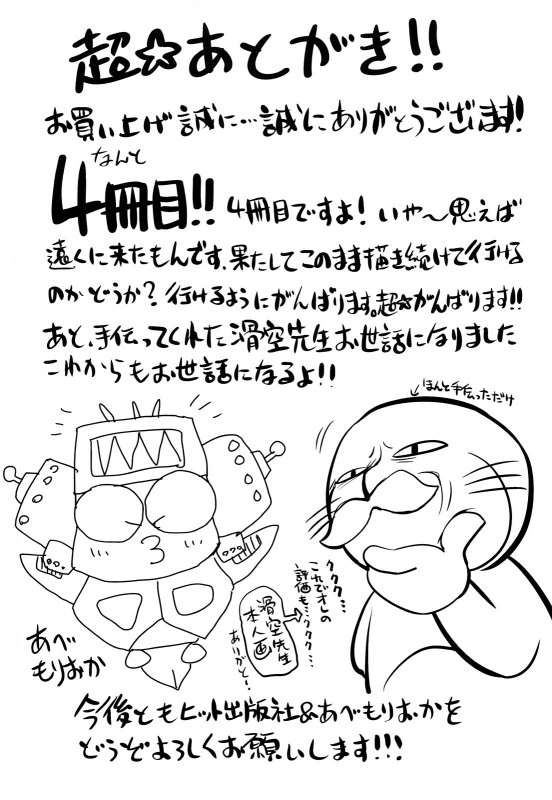 超☆あとがき!!
お買い上げ誠に…誠にありがとうございます!
なんと
4冊目!! 4冊目ですよ! いや〜思えば
遠くに来たもんです、果たしてこのまま描き続けて行ける
のかどうか? 行けるようにがんばります。超☆がんばります!!
あと、手伝ってくれた滑空先生お世話になりました
これからもお世話になるよ!!
ほんと手伝っただけ
ククク…
これでオレの
評価も…ククク…
滑空先生
本人画
ありがと!
あべ
もりおか
今後ともヒット出版社&あべもりおかを
どうぞよろしくお願いします!!!